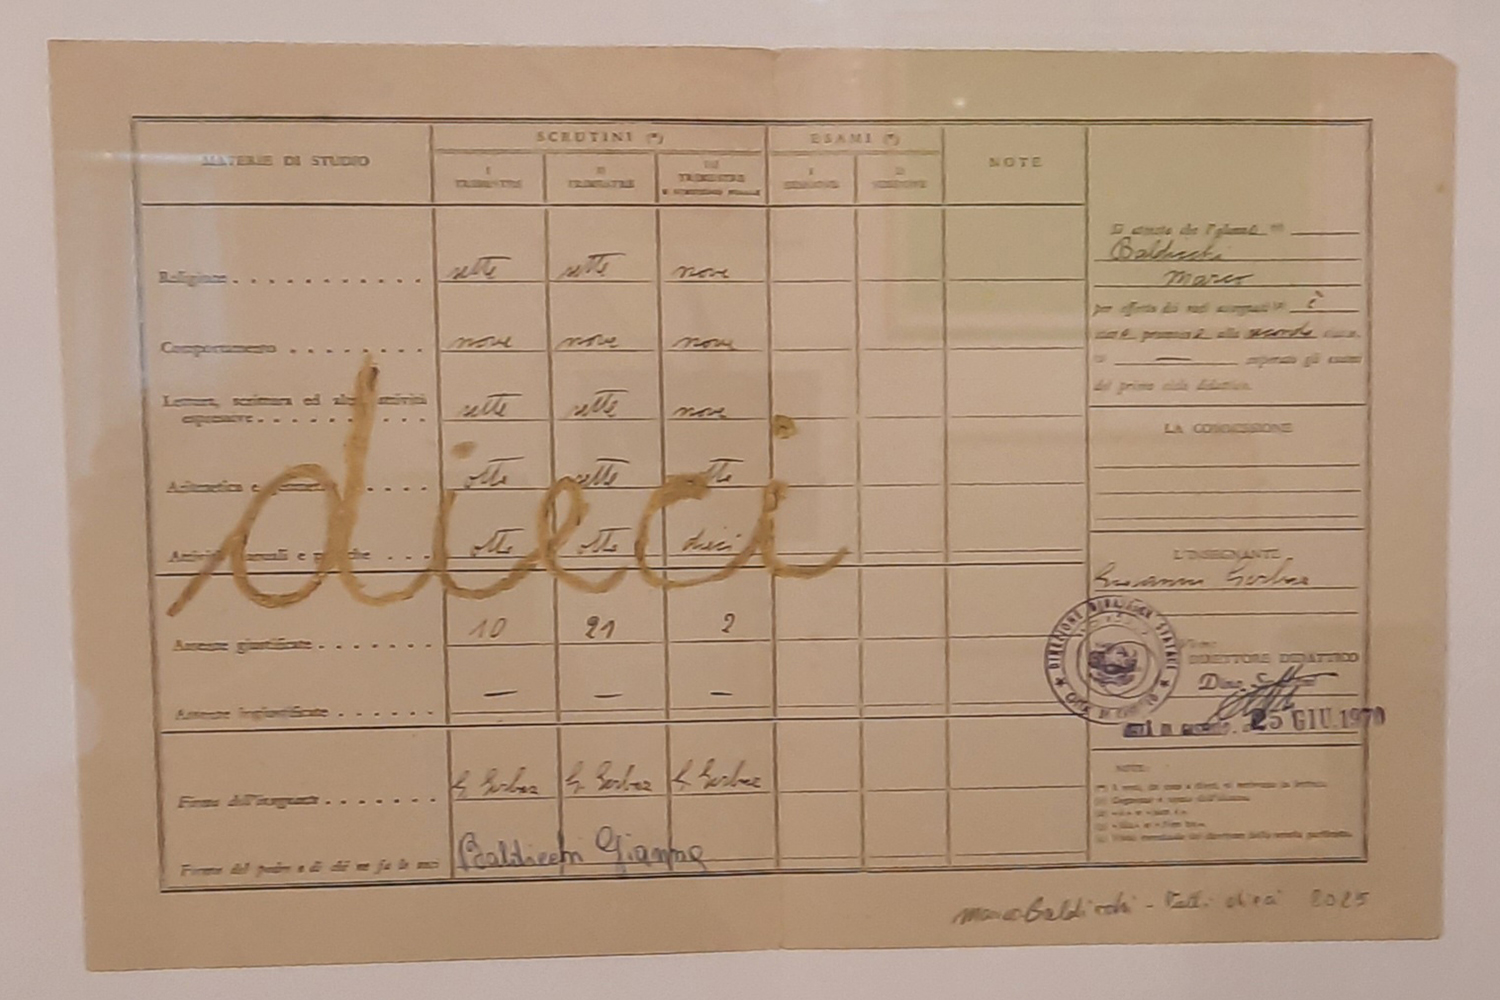 MATERIE DI STUDIO
SCRUTINI (*)
ESAMI (*)
NOTE
I
TRIMESTRE
II
TRIMESTRE
III
TRIMESTRE
E SCRUTINIO FINALE
I
SESSIONE
II
SESSIONE
Religione
sette sette nove
Comportamento
nove nove nove
Lettura, scrittura ed altre attività
espressive
sette sette nove
Aritmetica e geometria
otto sette otto
Attività manuali e pratiche
otto otto dieci
dieci
Assenze giustificate
10 21 2
Assenze ingiustificate
— — —
Firma dell'insegnante
G. Gerboz G. Gerboz G. Gerboz
Firma del padre o di chi ne fa le veci
Baldicchi Gianna
Si attesta che l'alunno
Baldicchi
Marco
per effetto dei voti assegnati è
stato promosso alla seconda classe
— superato gli esami
del primo ciclo didattico.
LA COMMISSIONE
L'INSEGNANTE
DIREZIONE DIDATTICA STATALE
DIRETTORE DIDATTICO
25 GIU. 1970
NOTE:
Marco Baldicchi - Tutti dieci 2025